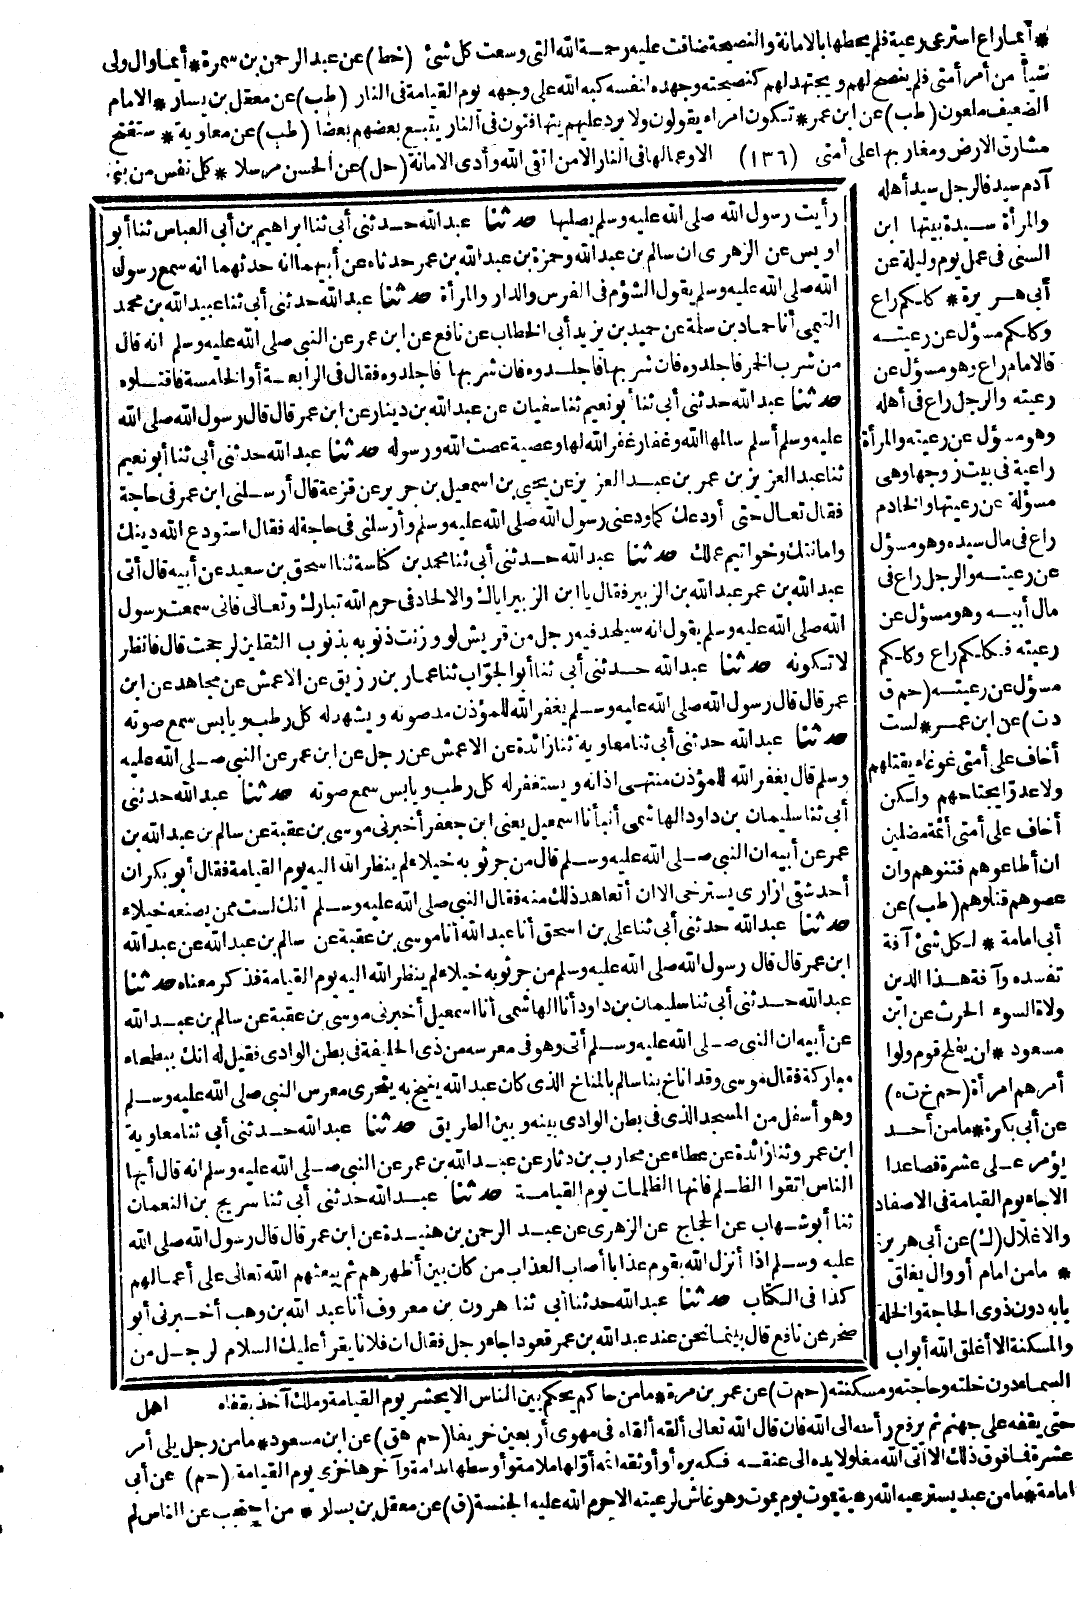 * أيماراع استرعى رعية فلم يحطها بالامانة والنصيحة ضاقت عليه رحمة الله التى وسعت كل شئ (خط) عن عبد الرحمن بن سمرة * أيما وال ولى
شيأ من أمر أمتى فلم ينصح لهم ويجتهد لهم كنصيحته وجهده لنفسه كبه الله على وجهه يوم القيامة فى النار (طب) عن معقل بن يسار * الامام
الضعيف ملعون (طب) عن ابن عمر * تكون امراء يقولون ولا يرد عليهم يتهافتون فى النار يتبع بعضهم بعضا (طب) عن معاوية * ستفتح
مشارق الارض ومغاربها على أمتى (١٣٦) الا وعمالها فى النار الا من اتقى الله وأدى الامانة (حل) عن الحسن مرسلا * كل نفس من بنى
آدم سيد فالرجل سيد أهله
والمرأة سيدة بيتها ابن
السنى فى عمل يوم وليلة عن
أبى هريرة * كلكم راع
وكلكم مسؤل عن رعيته
فالامام راع وهو مسؤل عن
رعيته والرجل راع فى أهله
وهو مسؤل عن رعيته والمرأة
راعية فى بيت زوجها وهى
مسؤلة عن رعيتها والخادم
راع فى مال سيده وهو مسؤل
عن رعيته والرجل راع فى
مال أبيه وهو مسؤل عن
رعيته فكلكم راع وكلكم
مسؤل عن رعيته (حم ق
دت) عن ابن عمر * لست
أخاف على أمتى غوغاء يقتلهم
ولا عدوا يجتاحهم ولكن
أخاف على أمتى أئمة مضلين
ان أطاعوهم فتنوهم وان
عصوهم قتلوهم (طب) عن
أبى امامة * لكل شئ آفة
تفسده وآفة هذا الدين
ولاة السوء الحرث عن ابن
مسعود * لن يفلح قوم ولوا
أمرهم امرأة (حم خ ت ن)
عن أبى بكرة * مامن أحد
يؤمر على عشرة فصاعدا
الا جاء يوم القيامة فى الاصفاد
والاغلال (ك) عن أبى هريرة
* مامن امام أو وال يغلق
بابه دون ذوى الحاجة والخلة
والمسكنة الا أغلق الله أبواب
رأيت رسول الله صلى الله عليه وسلم يصليها حدثنا عبدالله حدثنى أبى ثنا ابراهيم بن أبى العباس ثنا أبو
اويس عن الزهرى ان سالم بن عبدالله وحمزة بن عبدالله بن عمر حدثاه عن أبيهما انه حدثهما انه سمع رسول
الله صلى الله عليه وسلم يقول الشؤم فى الفرس والدار والمرأة حدثنا عبدالله حدثنى أبى ثنا عبيدالله بن محمد
التيمى أنا حماد بن سلمة عن حميد بن يزيد أبى الخطاب عن نافع عن ابن عمر عن النبى صلى الله عليه وسلم انه قال
من شرب الخمر فاجلدوه فان شربها فاجلدوه فان شربها فاجلدوه فقال فى الرابعة أو الخامسة فاقتلوه
حدثنا عبدالله حدثنى أبى ثنا أبو نعيم ثنا سفيان عن عبدالله بن دينار عن ابن عمر قال قال رسول الله صلى الله
عليه وسلم أسلم سالمها الله وغفار غفر الله لها وعصية عصت الله ورسوله حدثنا عبدالله حدثنى أبى ثنا أبو نعيم
ثنا عبدالعزيز بن عمر بن عبدالعزيز عن يحيى بن اسمعيل بن جرير عن قزعة قال أرسلنى ابن عمر فى حاجة
فقال تعال حتى أودعك كما ودعنى رسول الله صلى الله عليه وسلم وأرسلنى فى حاجة له فقال استودع الله دينك
وامانتك وخواتيم عملك حدثنا عبدالله حدثنى أبى ثنا محمد بن كناسة ثنا اسحق بن سعيد عن أبيه قال أتى
عبدالله بن عمر عبدالله بن الزبير فقال يا ابن الزبير اياك والالحاد فى حرم الله تبارك وتعالى فانى سمعت رسول
الله صلى الله عليه وسلم يقول انه سيلحد فيه رجل من قريش لو وزنت ذنوبه بذنوب الثقلين لرجحت قال فانظر
لا تكونه حدثنا عبدالله حدثنى أبى ثنا أبو الجواب ثنا عمار بن رزيق عن الاعمش عن مجاهد عن ابن
عمر قال قال رسول الله صلى الله عليه وسلم يغفر الله للمؤذن مد صوته ويشهد له كل رطب ويابس سمع صوته
حدثنا عبدالله حدثنى أبى ثنا معاوية ثنا زائدة عن الاعمش عن رجل عن ابن عمر عن النبى صلى الله عليه
وسلم قال يغفر الله للمؤذن منتهى اذانه ويستغفر له كل رطب ويابس سمع صوته حدثنا عبدالله حدثنى
أبى ثنا سليمان بن داود الهاشمى أنبأنا اسمعيل يعنى ابن جعفر أخبرنى موسى بن عقبة عن سالم بن عبدالله بن
عمر عن أبيه ان النبى صلى الله عليه وسلم قال من جر ثوبه خيلاء لم ينظر الله اليه يوم القيامة فقال أبو بكر ان
أحد شقى ازارى يسترخى الا ان أتعاهد ذلك منه فقال النبى صلى الله عليه وسلم انك لست ممن يصنعه خيلاء
حدثنا عبدالله حدثنى أبى ثنا على بن اسحق أنا عبدالله أنا موسى بن عقبة عن سالم بن عبدالله عن عبدالله
ابن عمر قال قال رسول الله صلى الله عليه وسلم من جر ثوبه خيلاء لم ينظر الله اليه يوم القيامة فذكر معناه حدثنا
عبدالله حدثنى أبى ثنا سليمان بن داود أنا الهاشمى أنا اسمعيل أخبرنى موسى بن عقبة عن سالم بن عبدالله
عن أبيه ان النبى صلى الله عليه وسلم أتى وهو فى معرسه من ذى الحليفة فى بطن الوادى فقيل له انك ببطحاء
مباركة فقال موسى وقد اناخ بنا سالم بالمناخ الذى كان عبدالله ينيخ به يتحرى معرس النبى صلى الله عليه وسلم
وهو أسفل من المسجد الذى فى بطن الوادى بينه وبين الطريق حدثنا عبدالله حدثنى أبى ثنا معاوية
ابن عمرو ثنا زائدة عن عطاء عن محارب بن دثار عن عبدالله بن عمر عن النبى صلى الله عليه وسلم انه قال أيها
الناس اتقوا الظلم فانها الظلمات يوم القيامة حدثنا عبدالله حدثنى أبى ثنا سريج بن النعمان
ثنا أبو شهاب عن الحجاج عن الزهرى عن عبد الرحمن بن هنيدة عن ابن عمر قال قال رسول الله صلى الله
عليه وسلم اذا أنزل الله بقوم عذابا أصاب العذاب من كان بين أظهرهم ثم يبعثهم الله تعالى على أعمالهم
كذا فى الكتاب حدثنا عبدالله حدثنا أبى ثنا هرون بن معروف أنا عبد الله بن وهب أخبرنى أبو
صخر عن نافع قال بينما نحن عند عبدالله بن عمر قعودا جاء رجل فقال ان فلانا يقرأ عليك السلام لرجل من
السماء دون خلته وحاجته ومسكنته (حم ت) عن عمر بن مرة * مامن حاكم يحكم بين الناس الا يحشر يوم القيامة وملك آخذ بقفاه اهل
حتى يقفه على جهنم ثم يرفع رأسه الى الله فان قال الله تعالى ألقه ألقاه فى مهوى أربعين خريفا (حم هق) عن ابن مسعود * مامن رجل يلى أمر
عشرة فما فوق ذلك الا أتى الله مغلولا يده الى عنقه فكه بره أو أوثقه اثمه أولها ملامة وأوسطها ندامة وآخرها خزى يوم القيامة (حم) عن أبى
امامة * مامن عبد يسترعيه الله رعية يموت يوم يموت وهو غاش لرعيته الا حرم الله عليه الجنة (ق) عن معقل بن يسار * من احتجب عن الناس لم